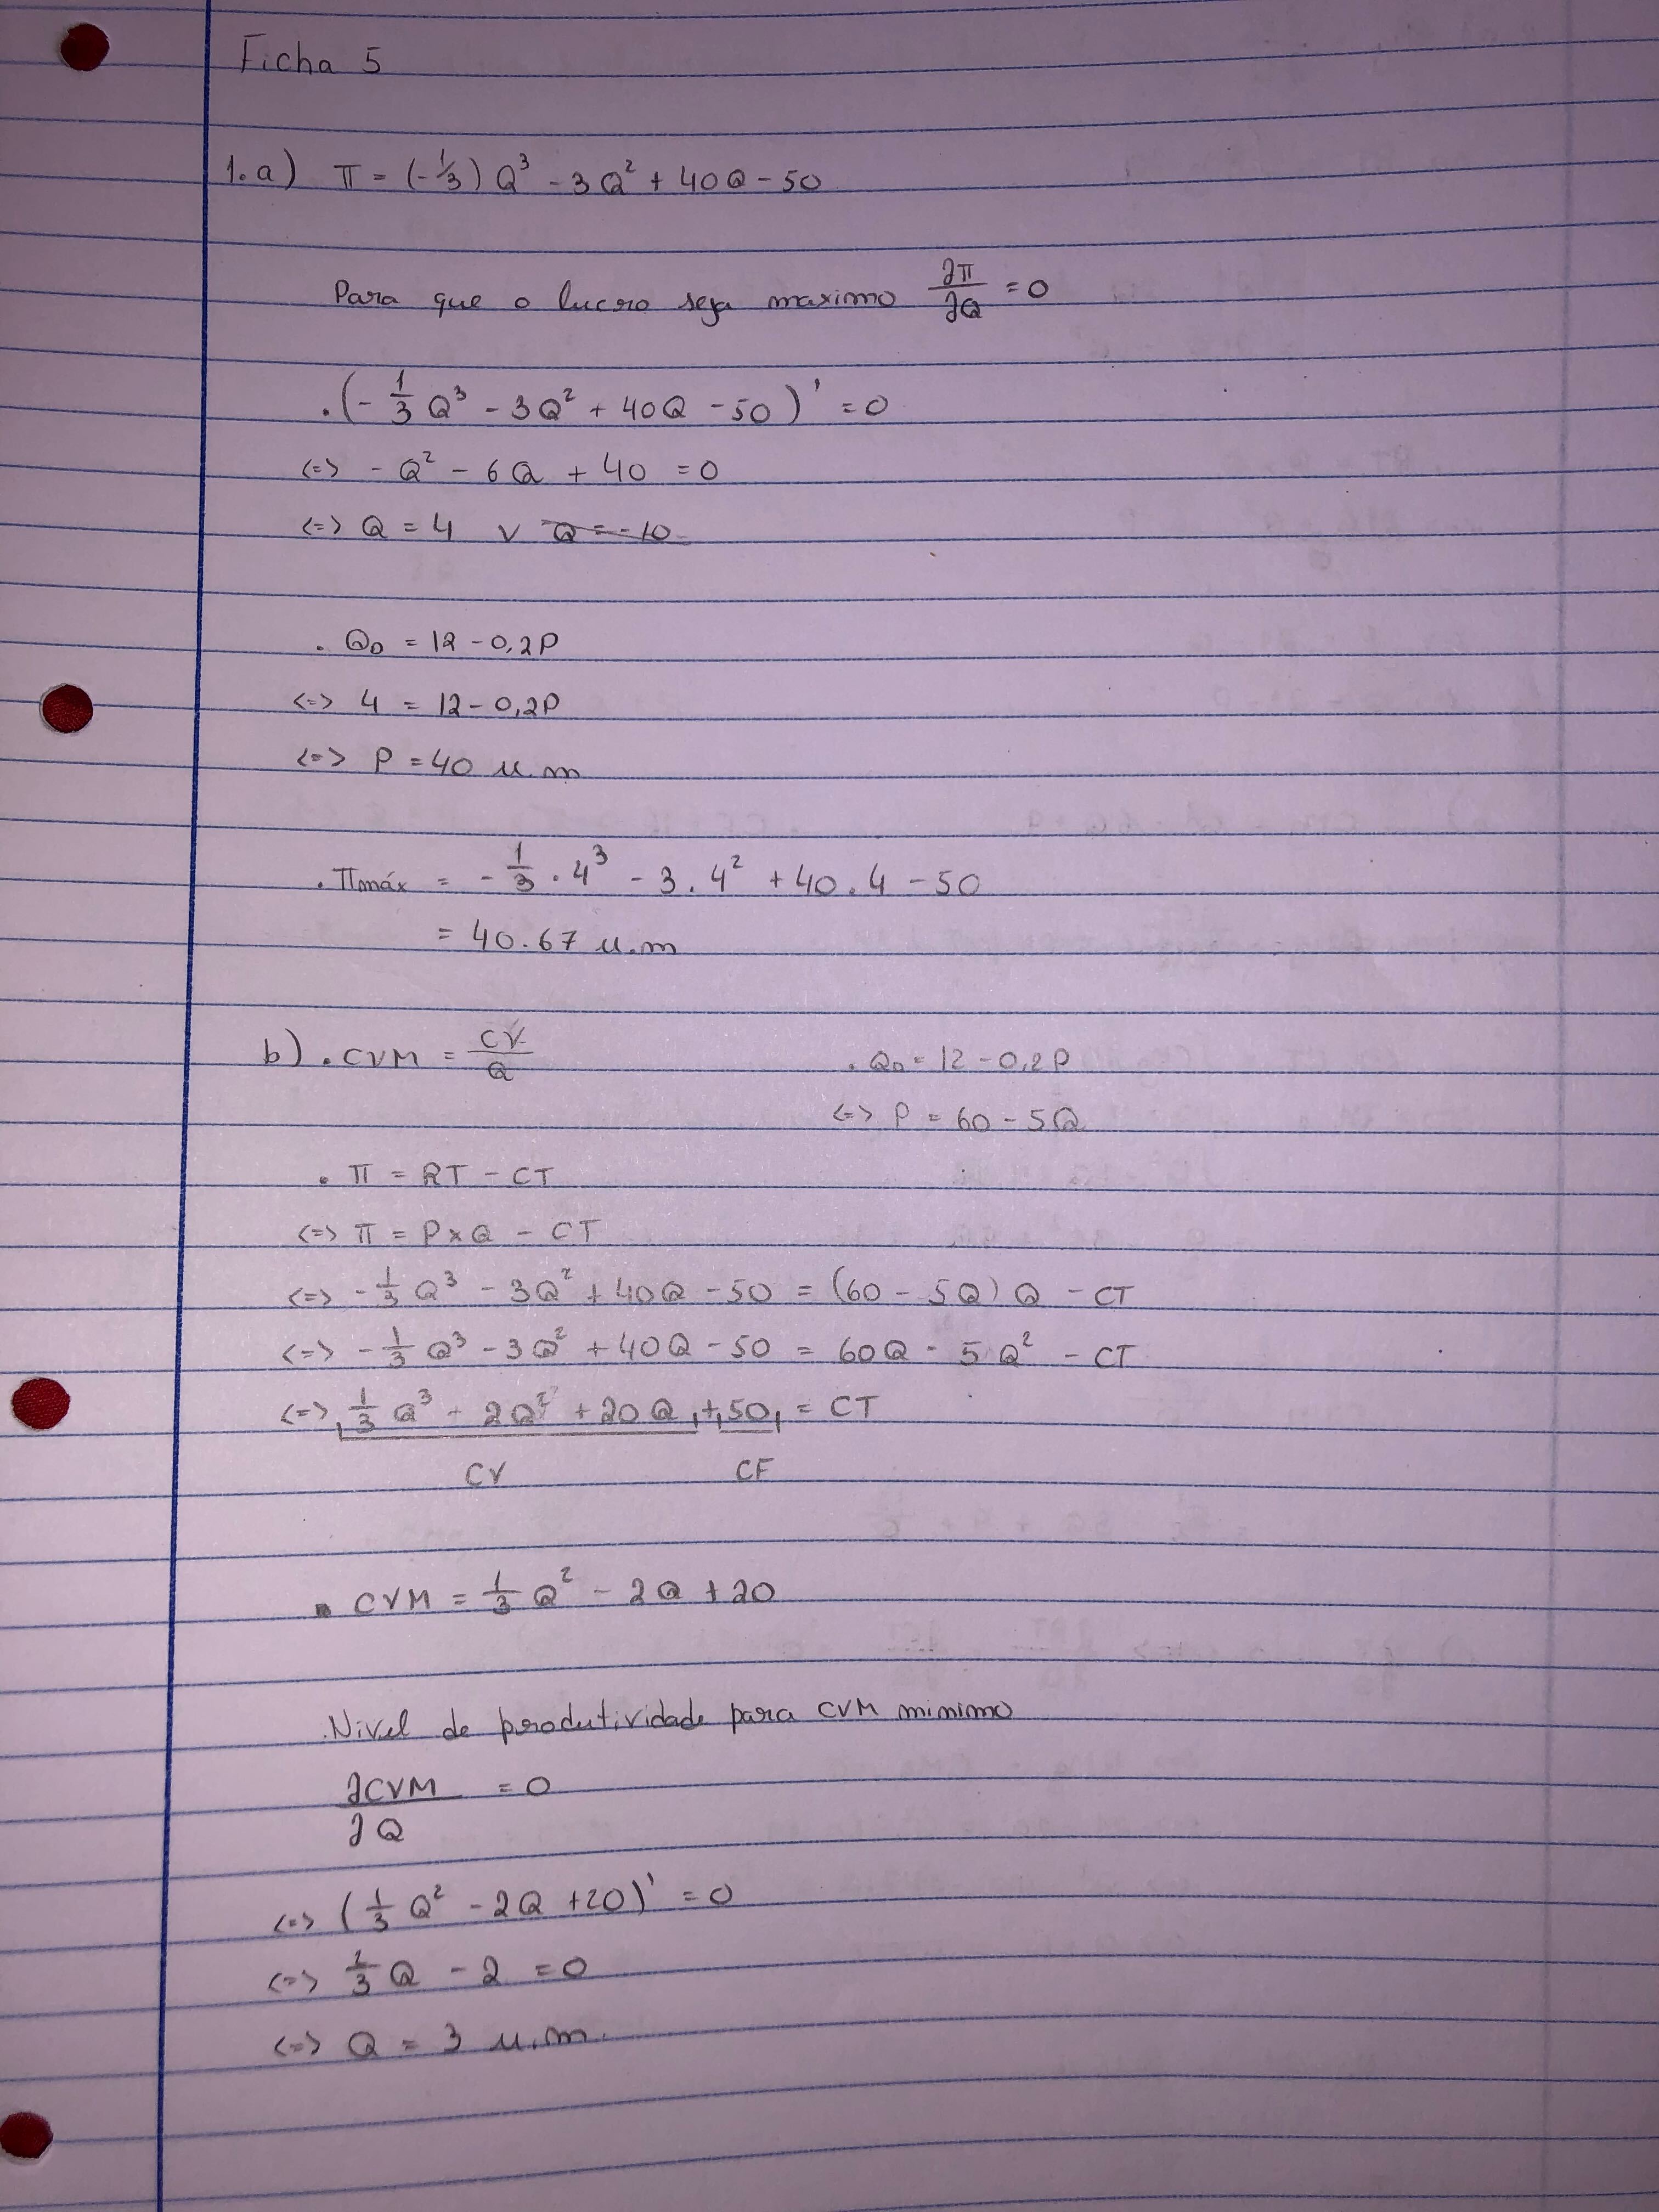 Ficha 5
1.a) π = (-1/3) Q³ - 3Q² + 40Q - 50
Para que o lucro seja maximo ∂π/∂Q = 0
. (-1/3 Q³ - 3Q² + 40Q - 50)' = 0
<=> - Q² - 6Q + 40 = 0
<=> Q = 4 v Q = -10
. QD = 12 - 0,2P
<=> 4 = 12 - 0,2P
<=> P = 40 u.m
. πmáx = - 1/3 . 4³ - 3 . 4² + 40 . 4 - 50
= 40.67 u.m
b) . CVM = CV/Q
. QD = 12 - 0,2P
<=> P = 60 - 5Q
. π = RT - CT
<=> π = P x Q - CT
<=> - 1/3 Q³ - 3Q² + 40Q - 50 = (60 - 5Q) Q - CT
<=> - 1/3 Q³ - 3Q² + 40Q - 50 = 60Q - 5Q² - CT
<=> 1/3 Q³ - 2Q² + 20Q + 50 = CT
CV CF
. CVM = 1/3 Q² - 2Q + 20
. Nivel de produtividade para CVM minimo
∂CVM/∂Q = 0
<=> (1/3 Q² - 2Q + 20)' = 0
<=> 2/3 Q - 2 = 0
<=> Q = 3 u.m.